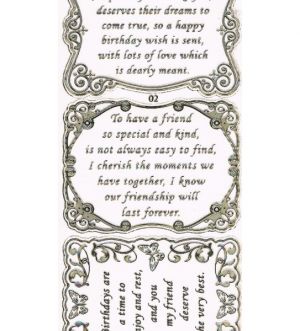 deserves their dreams to
come true, so a happy
birthday wish is sent,
with lots of love which
is dearly meant.
02
To have a friend
so special and kind,
is not always easy to find,
I cherish the moments we
have together, I know
our friendship will
last forever.
birthdays are
a time to
enjoy and rest,
and you
my friend
deserve
the very best.